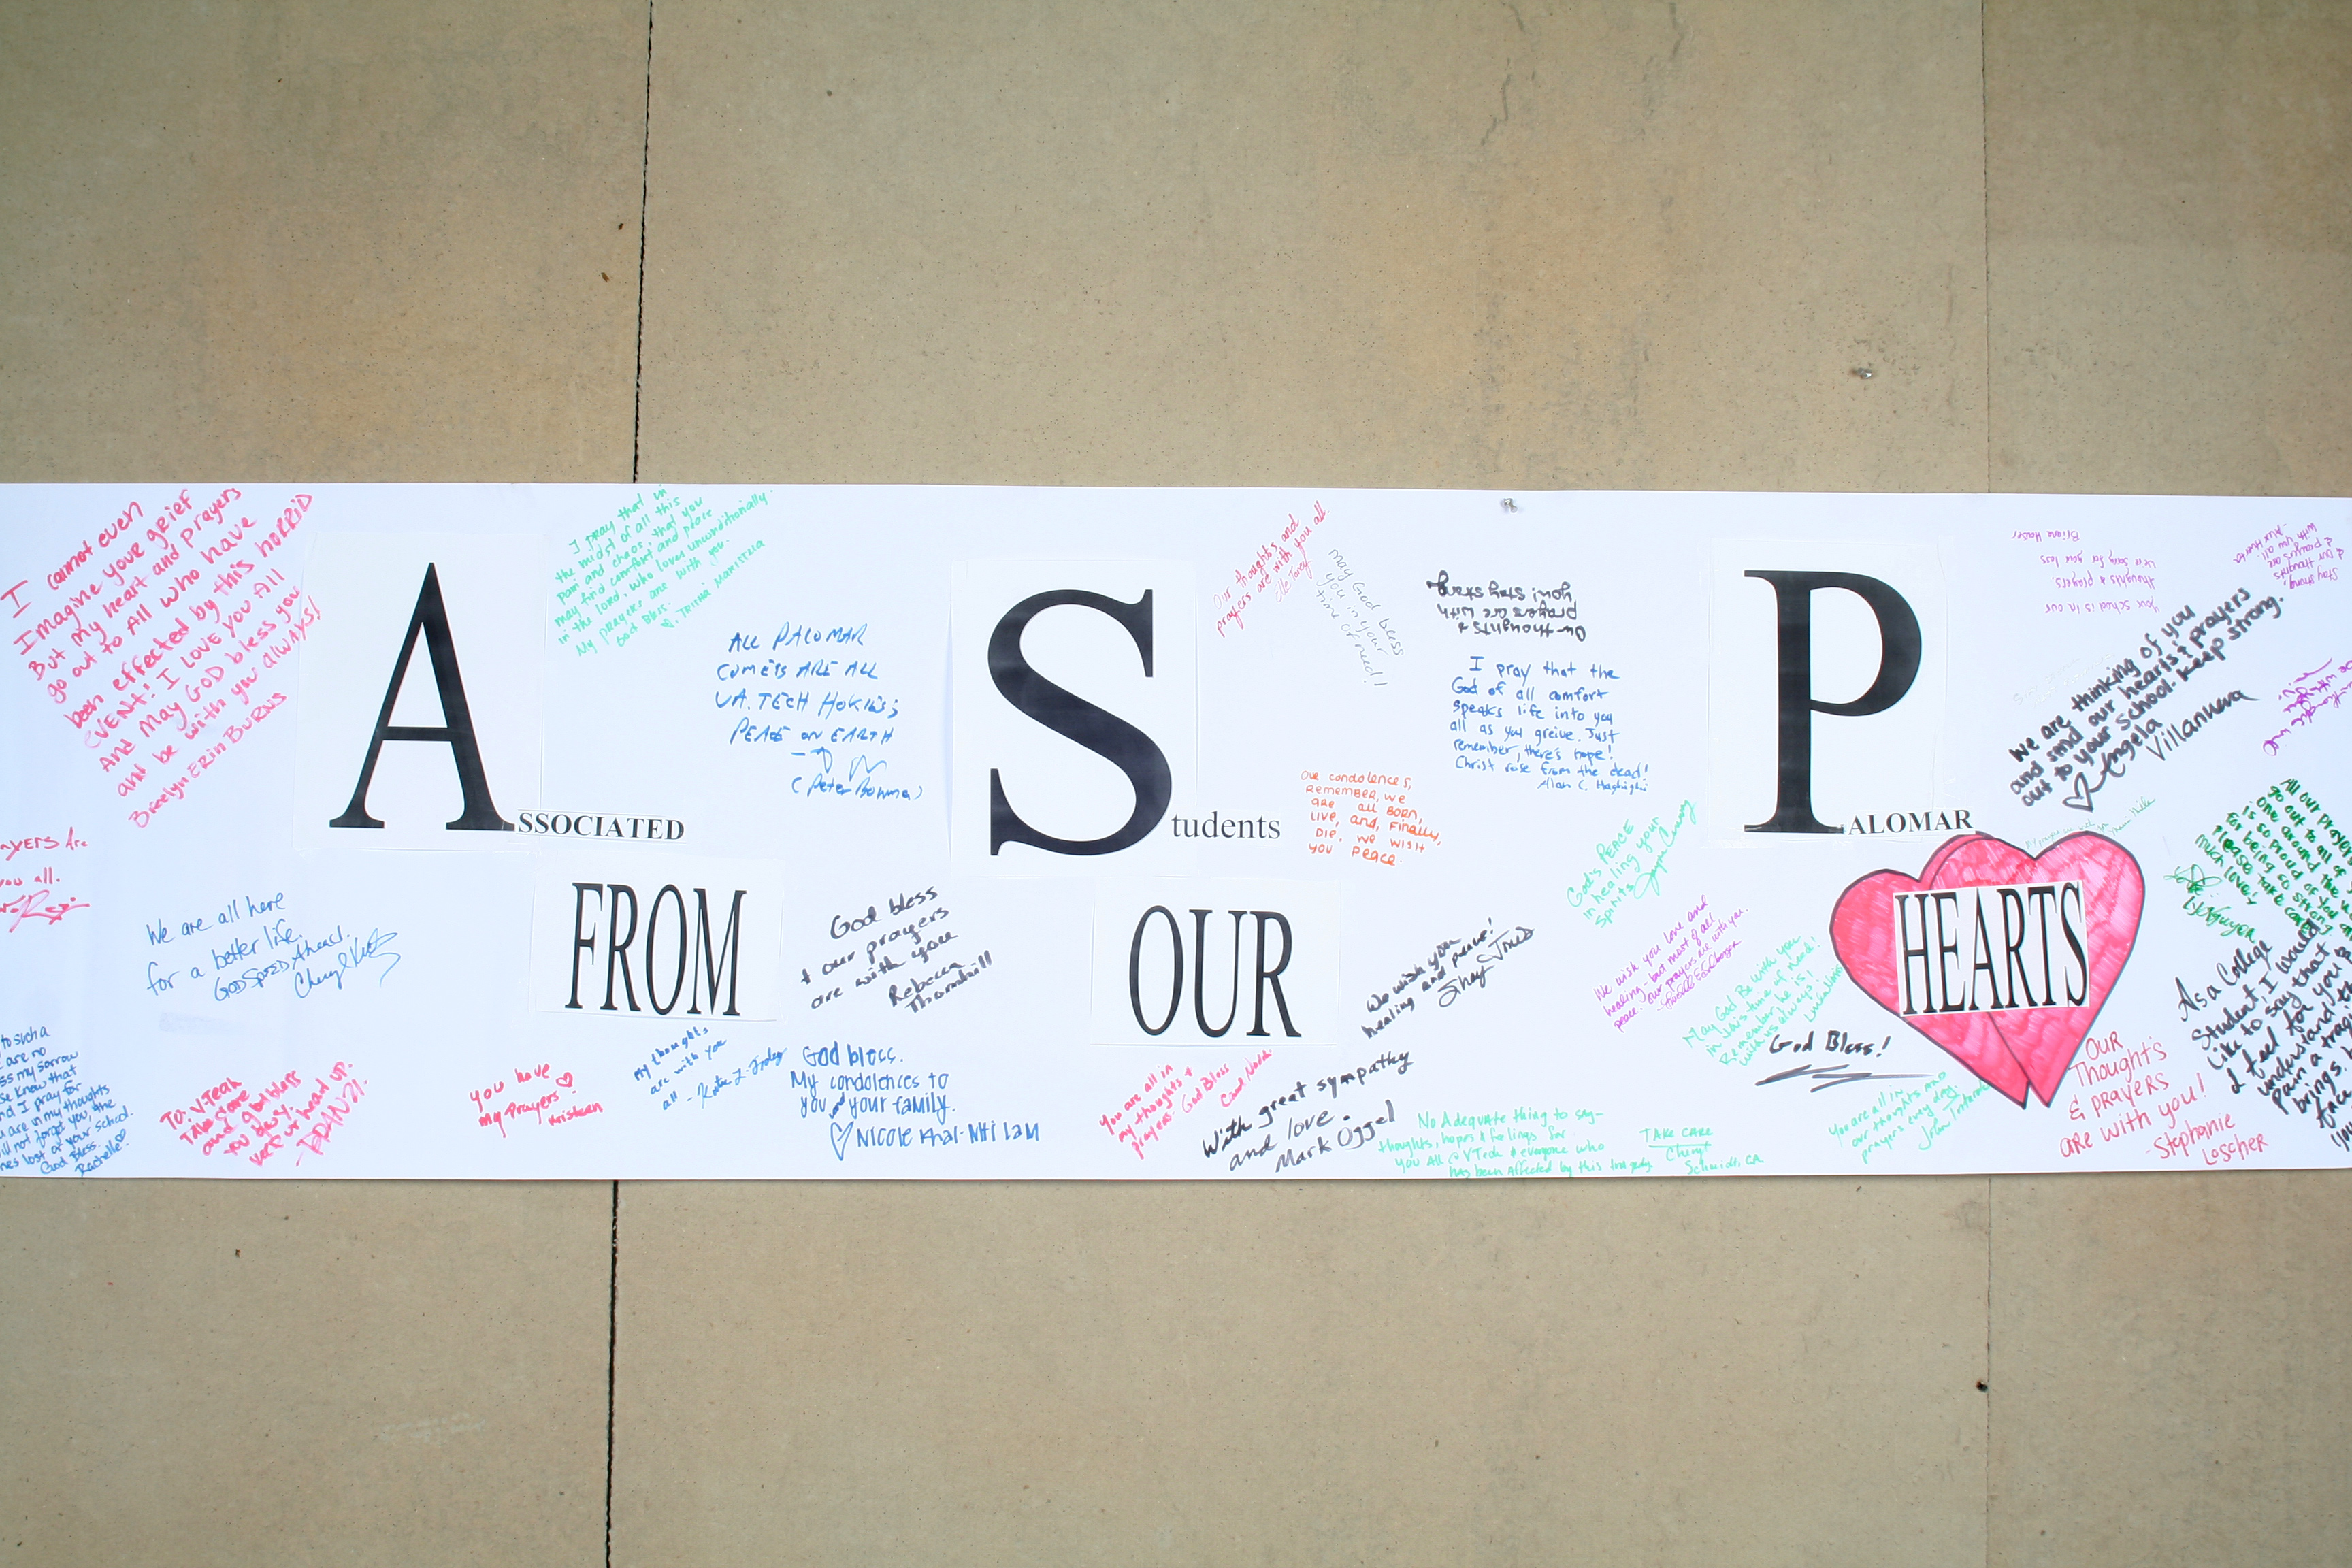 I cannot even
Imagine your grief
But my heart and prayers
go out to All who have
been effected by this horrid
EVENT! I LOVE you All
And May GOD bless you
and be with you always!
Erin Burns
I pray that in
the midst of all this
pain and chaos, that you
may find comfort and peace
in the Lord, who loves unconditionally.
My prayers are with you.
God Bless.
ALL PALOMAR
COMETS ARE ALL
VA. TECH HOKIES;
PEACE ON EARTH
(Peter Bowman)
Our thoughts and
prayers are with you all.
may God bless
you in your
time of need!
Our thoughts &
prayers are with
you! stay strong
I pray that the
God of all comfort
speaks life into you
all as you greive. Just
remember, there's hope!
Christ rose from the dead!
Alan C. Haghighi
Stay strong
Our thoughts
& prayers are
with you all.
your school is in our
thoughts & prayers.
We are thinking of you
and send our hearts & prayers
out to your school. Keep strong.
Angela
Villanueva
ASSOCIATED
Students
PALOMAR
Our condolences,
Remember, we
are all BORN,
LIVE, and, Finally,
DIE. we wish
you peace.
God's PEACE
in healing your
spirits
All our prayers
go out to all of
FROM
OUR
HEARTS
ayers Are
you all.
We are all here
for a better life.
GODSPEED Ahead.
God bless
+ our prayers
are with you
Rebecca
Thornhill
We wish you
healing and peace!
We wish you love and
healing - but most of all
peace. our prayers are with you.
May God Be with you
in this time of need!
Remember he is
with us always!
God Bless!
As a College
Student, I would
like to say that
I feel for you
understand
pain a
brings.
to such a
are no
ss my sorrow
se know that
nd I pray for
u are in my thoughts
ill not forget you, the
nes lost or your school.
God Bless.
Rachelle
To: V-Tech
Take care
and god bless
you guys.
keep ur head up.
you have
my prayers
Kristeen
my thoughts
are with you
all -
God bless.
My condolences to
you and your family.
Nicole Khai-Nhi Lam
You are all in
my thoughts +
prayers. God Bless
With great sympathy
and love.
Mark Oggel
No Adequate thing to say-
thoughts, hopes & feelings for
you All @ VTech & everyone who
has been affected by this tragedy
TAKE CARE
Cheryl
Schmidt, CA.
You are all in
our thoughts and
prayers every day.
OUR
Thought's
& prayers
are with you!
-Stephanie
Loscher